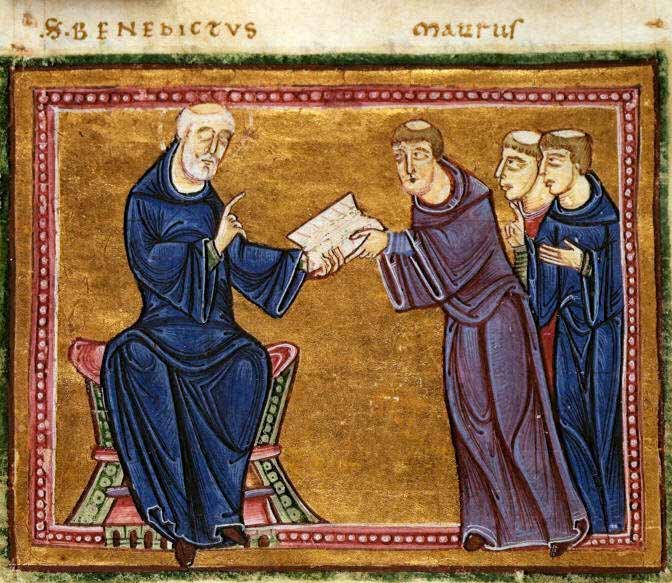 S. BENEDICTUS MAURUS